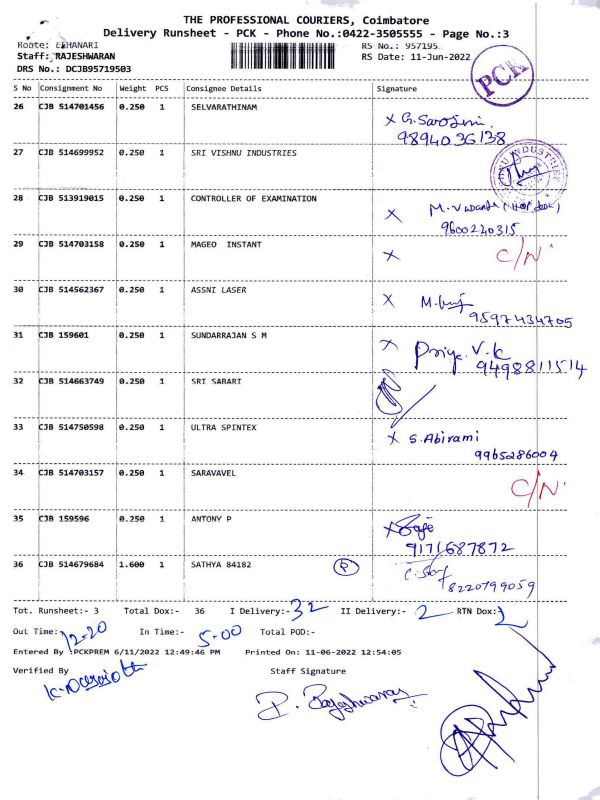 THE PROFESSIONAL COURIERS, Coimbatore
Delivery Runsheet - PCK - Phone No.:0422-3505555 - Page No.:3
Route: EHANARI RS No.: 957195
Staff: RAJESHWARAN RS Date: 11-Jun-2022
DRS No.: DCJB95719503
PCK
S No Consignment No Weight PCS Consignee Details Signature
26 CJB 514701456 0.250 1 SELVARATHINAM
x G. Sarojini
9894036138
27 CJB 514699952 0.250 1 SRI VISHNU INDUSTRIES
28 CJB 513919015 0.250 1 CONTROLLER OF EXAMINATION
x M.
9600240315
29 CJB 514703158 0.250 1 MAGEO INSTANT
x C/N
30 CJB 514562367 0.250 1 ASSNI LASER
x M.
9597434705
31 CJB 159601 0.250 1 SUNDARRAJAN S M
x Priya. V.K
9498811514
32 CJB 514663749 0.250 1 SRI SABARI
33 CJB 514750598 0.250 1 ULTRA SPINTEX
x S. Abirami
9965286004
34 CJB 514703157 0.250 1 SARAVAVEL
C/N
35 CJB 159596 0.250 1 ANTONY P
x
9171687872
36 CJB 514679684 1.600 1 SATHYA 84182
8220799059
Tot. Runsheet:- 3 Total Dox:- 36 I Delivery:- 32 II Delivery:- 2 RTN Dox:- 2
Out Time: 12-20 In Time:- 5-00 Total POD:-
Entered By :PCKPREM 6/11/2022 12:49:46 PM Printed On: 11-06-2022 12:54:05
Verified By Staff Signature
P. Rajeshwaran